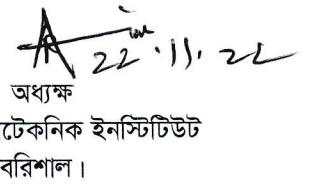 22.11.22
অধ্যক্ষ
টেকনিক ইনস্টিটিউট
বরিশাল।